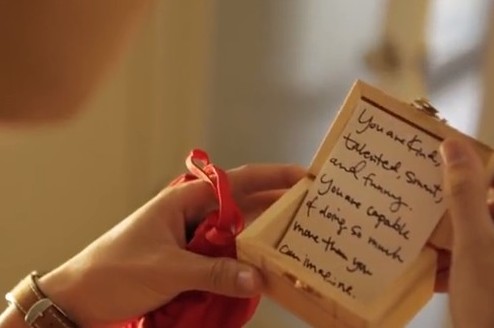 You are kind,
talented, smart,
and funny.
You are capable
of doing so much
more than you
can imagine.